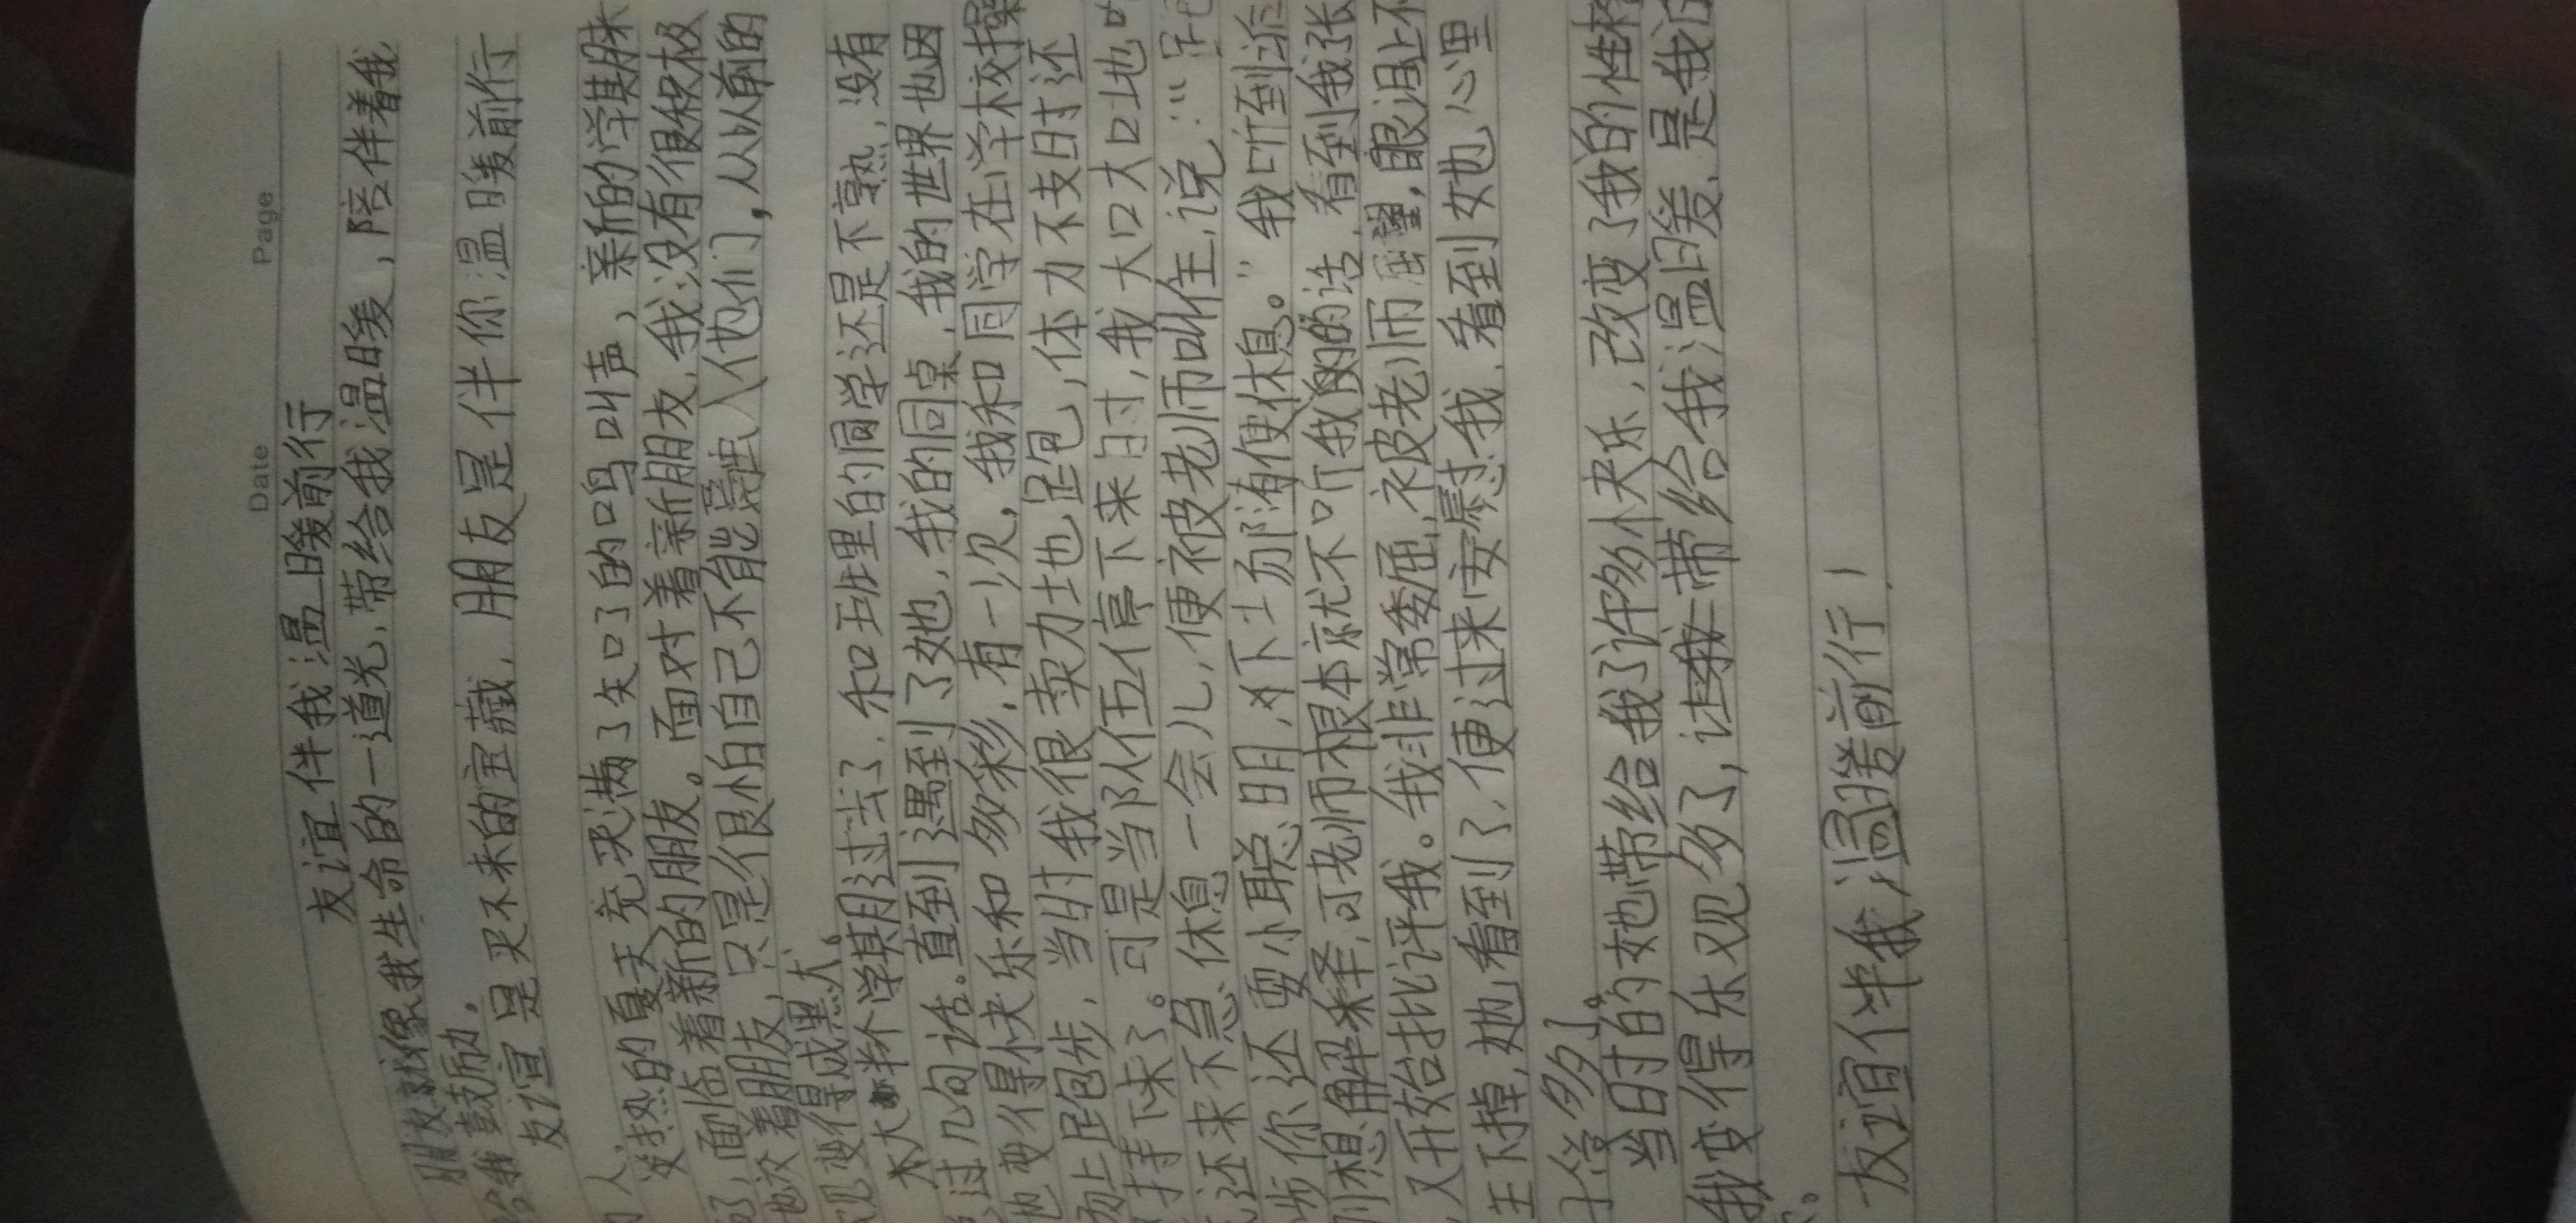 Date Page
友谊伴我温暖前行
朋友就像我生命的一道光,带给我温暖,陪伴着我
给我鼓励。
友谊是买不来的宝藏,朋友是伴你温暖前行
人
炎热的夏天充满了知了的鸣叫声,新的学期来
了,面临着新的朋友。面对着新朋友,我没有很积极
地交着朋友,只是很怕自己不能融入他们,从以前的
变得成黑天。
大半个学期过去了,和班里的同学还是不熟,没有
过几句话。直到遇到了她,我的同桌,我的世界也因
也变得快乐和多彩,有一次,我和同学在学校操
场上跑步,当时我很卖力地跑,体力不支时还
持下来了。可是当队伍停下来时,我大口大口地
还来不急休息一会儿,便被老师叫住,说:“
步你还耍小聪明,下场便休息。”我听到后
想解释,可老师根本就不听我的话,看到我张
又开始批评我。我非常委屈,被老师,眼泪止不
往下掉,她看到了,便过来安慰我,看到她心里
好多了。
当时的她带给我了许多快乐,改变了我的性格
我变得乐观多了,带给我温暖,是我
。
友谊伴我温暖前行!